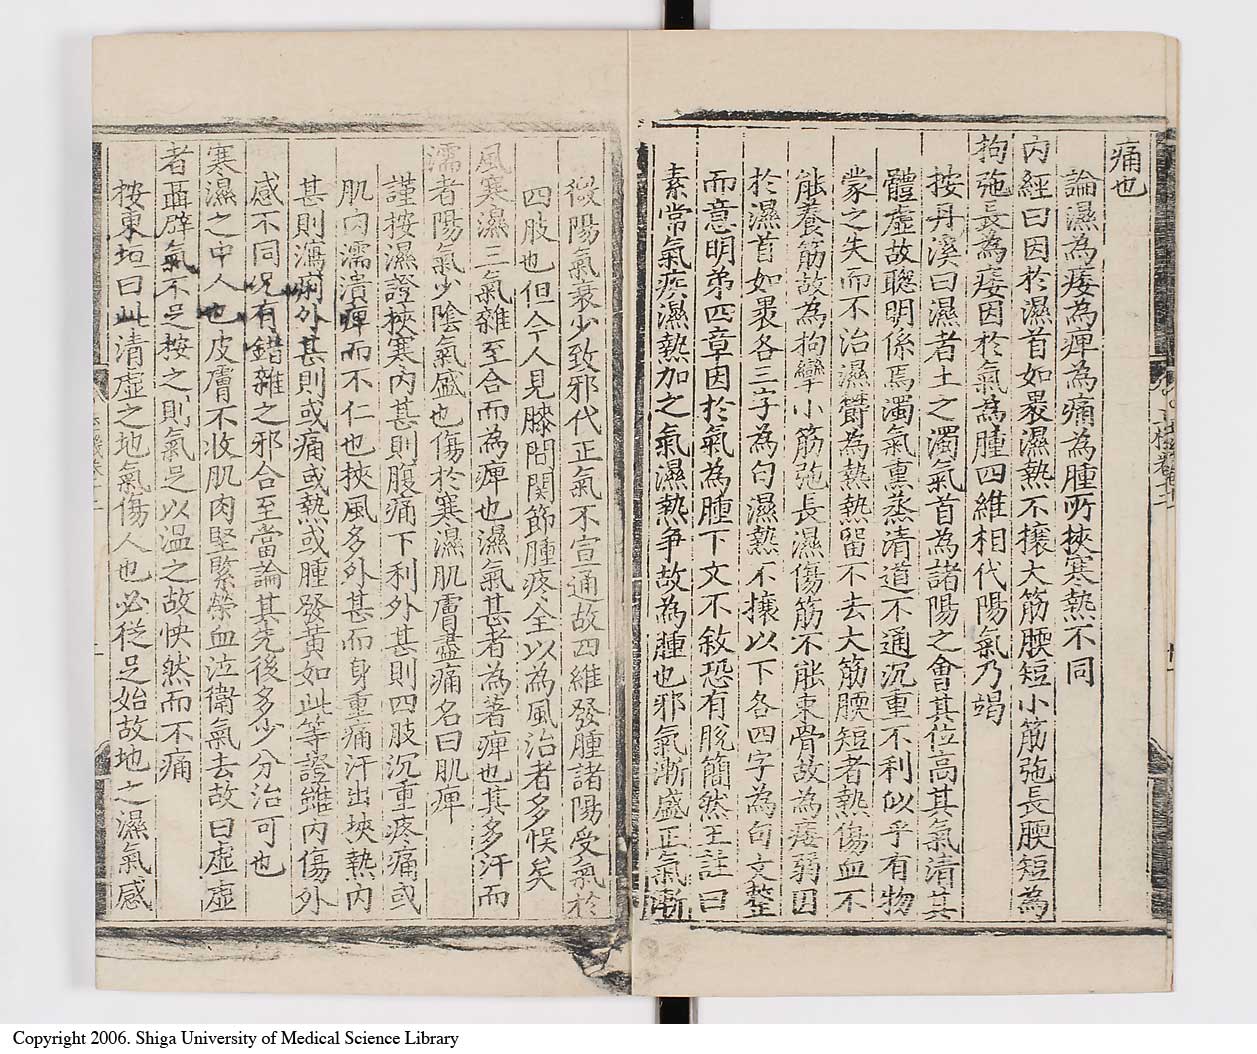 痛也
論濕為痿為痺為痛為腫所挾寒熱不同
内經曰因於濕首如裹濕熱不攘大筋腝短小筋弛長腝短為
拘弛長為痿因於氣為腫四維相代陽氣乃竭
按丹溪曰濕者土之濁氣首為諸陽之會其位高其氣清其
體虛故聰明係焉濁氣熏蒸清道不通沉重不利似乎有物
蒙之失而不治濕欝為熱熱畱不去大筋腝短者熱傷血不
能養筋故為拘攣小筋弛長濕傷筋不能束骨故為痿弱因
於濕首如裹各三字為句濕熱不攘以下各四字為句文整
而意明弟四章因於氣為腫下文不敘恐有脫簡然王註曰
素常氣疾濕熱加之氣濕熱爭故為腫也邪氣漸盛正氣漸
微陽氣衰少致邪代正氣不宣通故四維發腫諸陽受氣於
四肢也但今人見膝間關節腫疼全以為風治者多悮矣
風寒濕三氣雜至合而為痺也濕氣甚者為著痺也其多汗而
濡者陽氣少陰氣盛也傷於寒濕肌膚盡痛名曰肌痺
謹按濕證挾寒内甚則腹痛下利外甚則四肢沉重疼痛或
肌肉濡潰痺而不仁也挾風多外甚而身重痛汗出挾熱内
甚則瀉痢外甚則或痛或熱或腫發黃如此等證雖内傷外
感不同況有錯雜之邪合至當論其先後多少分治可也
寒濕之中人也皮膚不收肌肉堅緊榮血泣衛氣去故曰虛虛
者聶辟氣不足按之則氣足以温之故怏然而不痛
按東垣曰此清虛之地氣傷人也必從足始故地之濕氣感
Copyright 2006. Shiga University of Medical Science Library